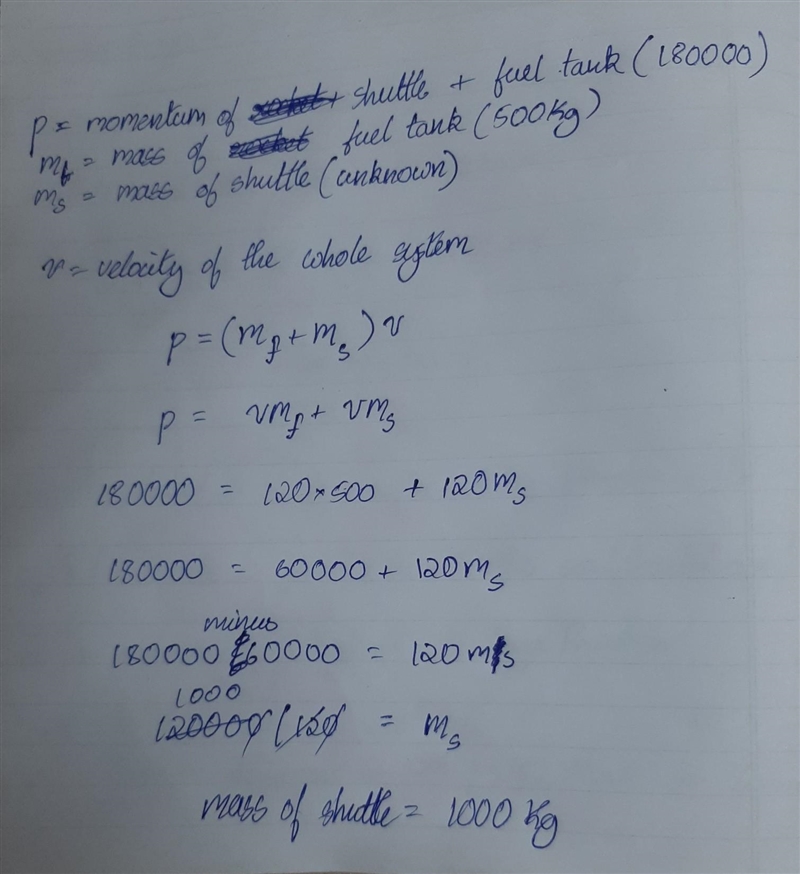 p = momentum of shuttle + fuel tank (180000)
mf = mass of fuel tank (500kg)
ms = mass of shuttle (unknown)
v = velocity of the whole system
p = (mf + ms) v
p = vmf + vms
180000 = 120 × 500 + 120ms
180000 = 60000 + 120ms
minus
180000 60000 = 120 ms
1000
120000 / 120 = ms
mass of shuttle = 1000 kg